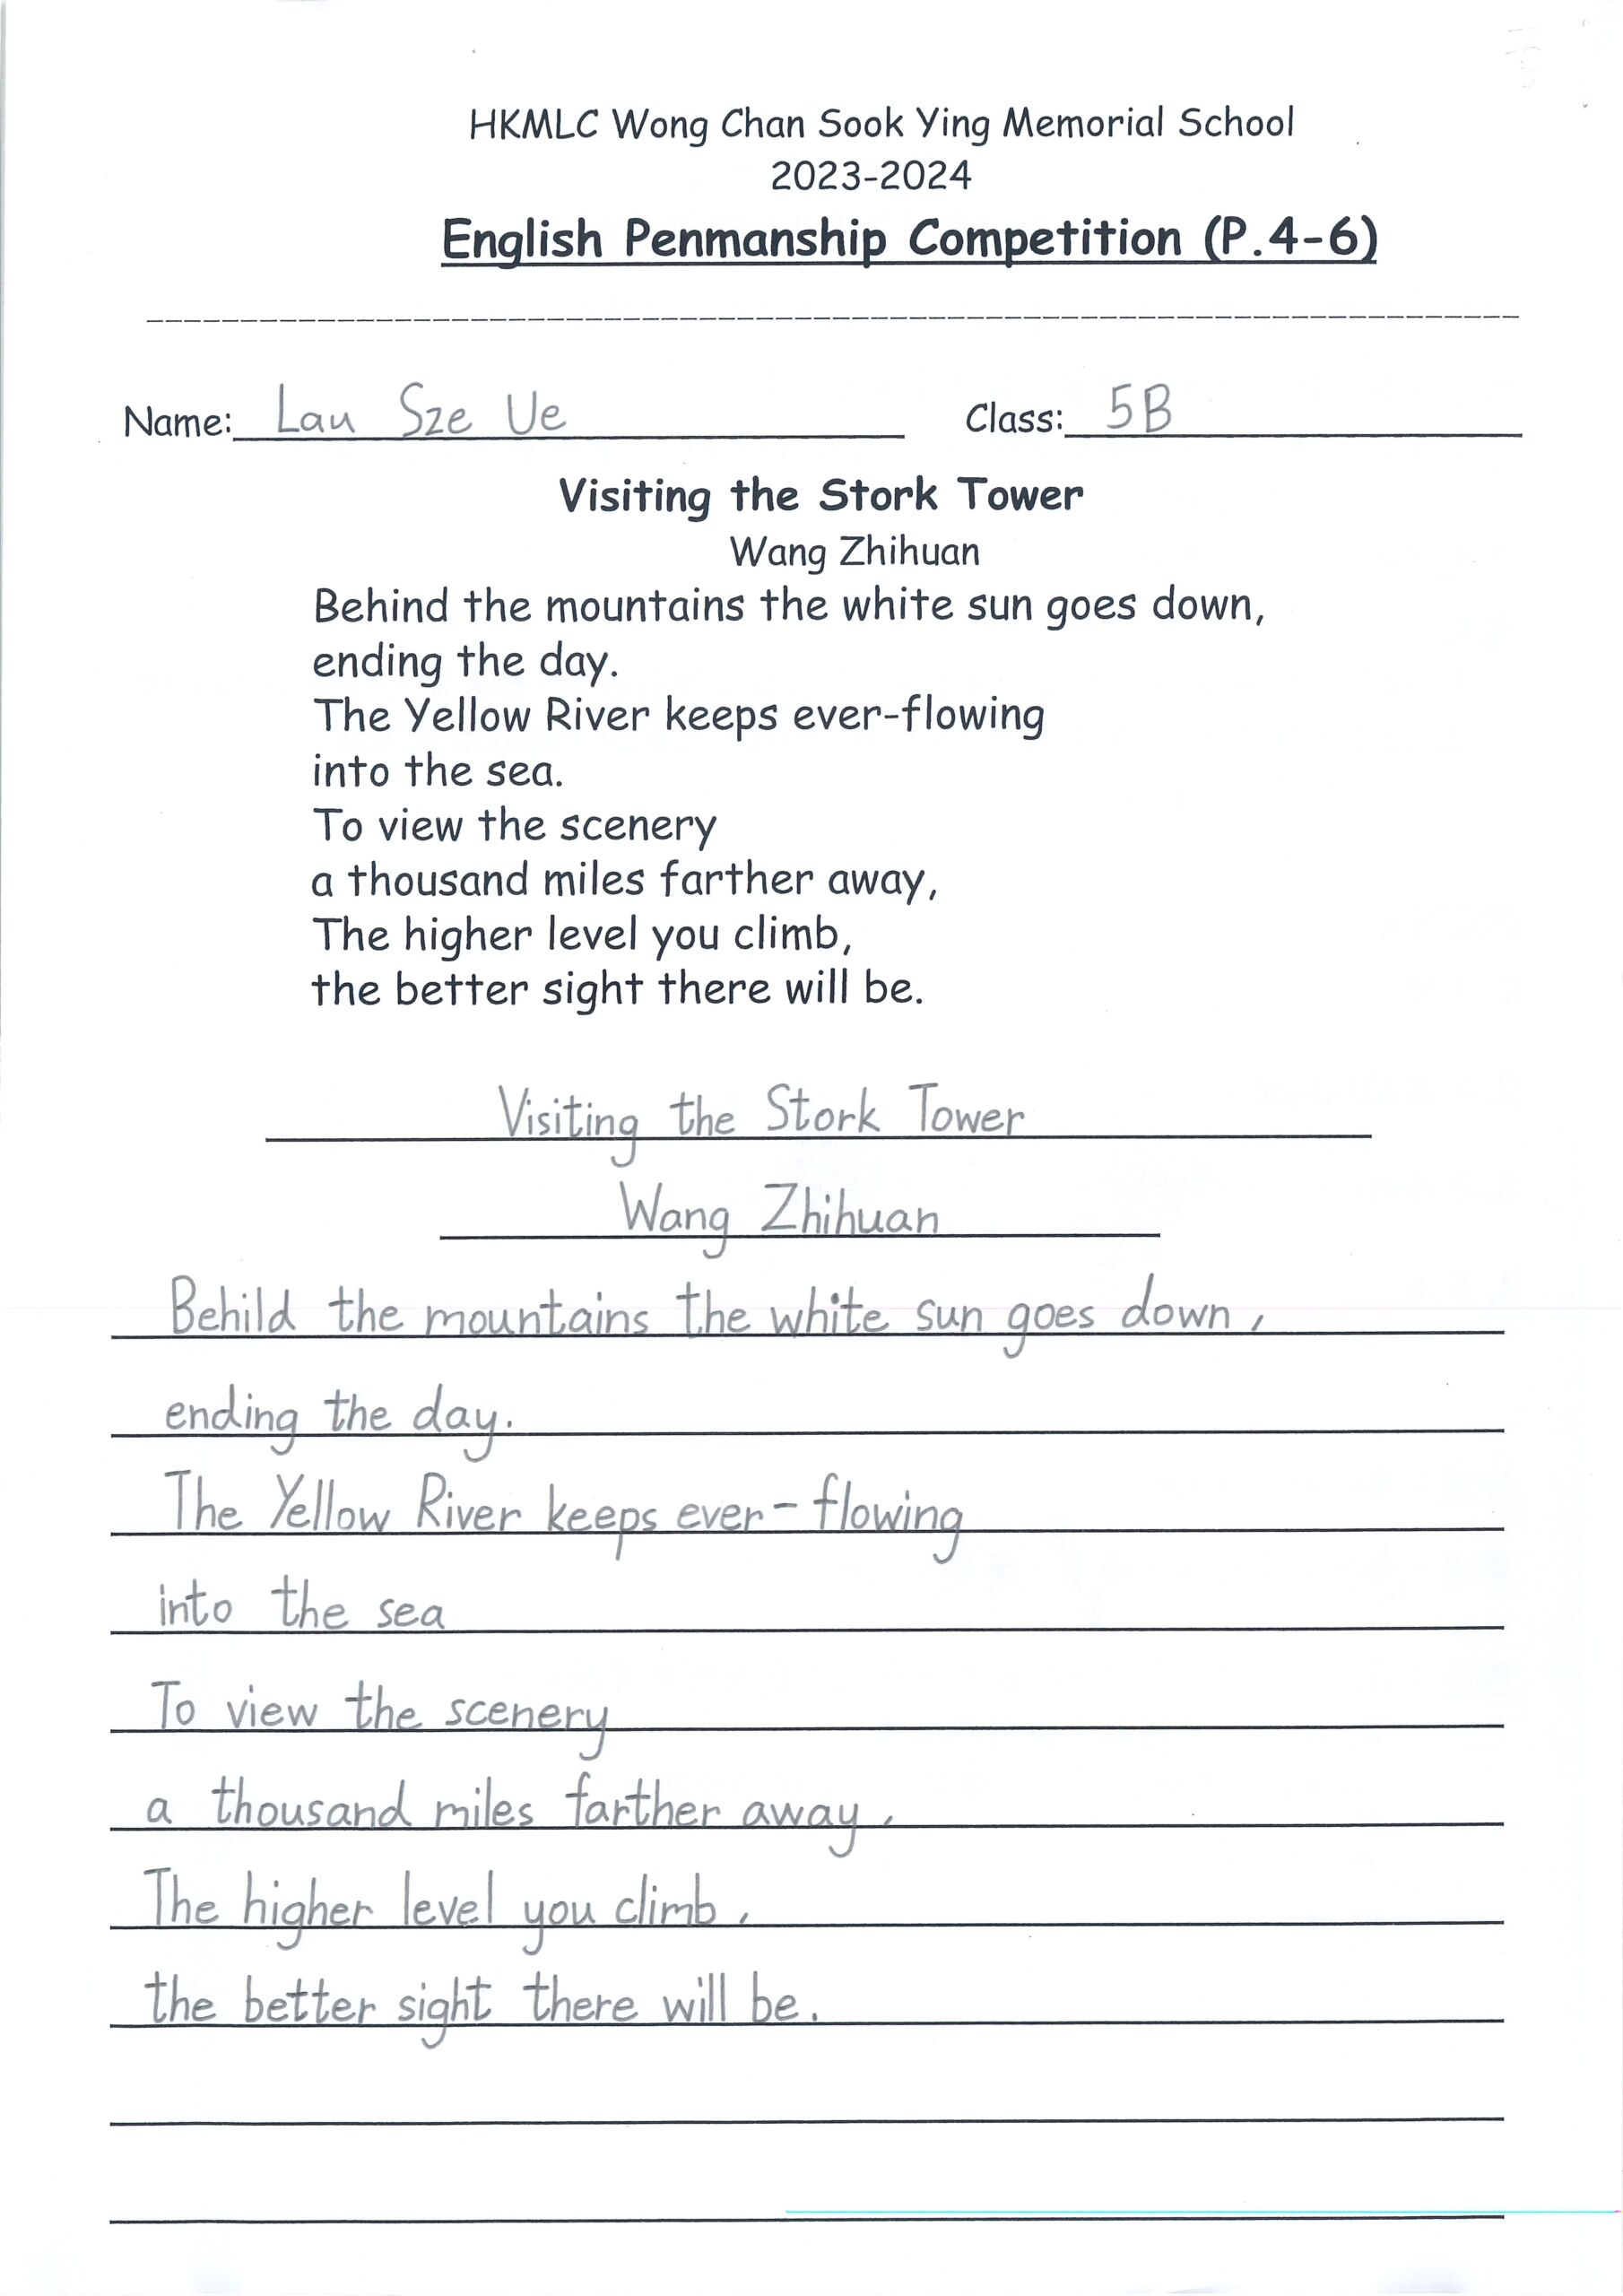 HKMLC Wong Chan Sook Ying Memorial School
2023-2024
English Penmanship Competition (P.4-6)
Name: Lau Sze Ue Class: 5B
Visiting the Stork Tower
Wang Zhihuan
Behind the mountains the white sun goes down,
ending the day.
The Yellow River keeps ever-flowing
into the sea.
To view the scenery
a thousand miles farther away,
The higher level you climb,
the better sight there will be.
Visiting the Stork Tower
Wang Zhihuan
Behild the mountains the white sun goes down,
ending the day.
The Yellow River keeps ever-flowing
into the sea
To view the scenery
a thousand miles farther away,
The higher level you climb,
the better sight there will be.